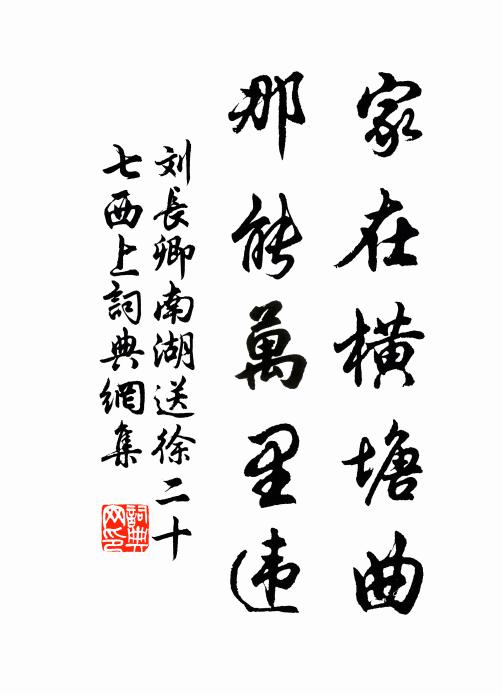 家在橫塘曲
那能萬里違
刘長卿南湖送徐二十
七西上詞典網集
詞典
网印